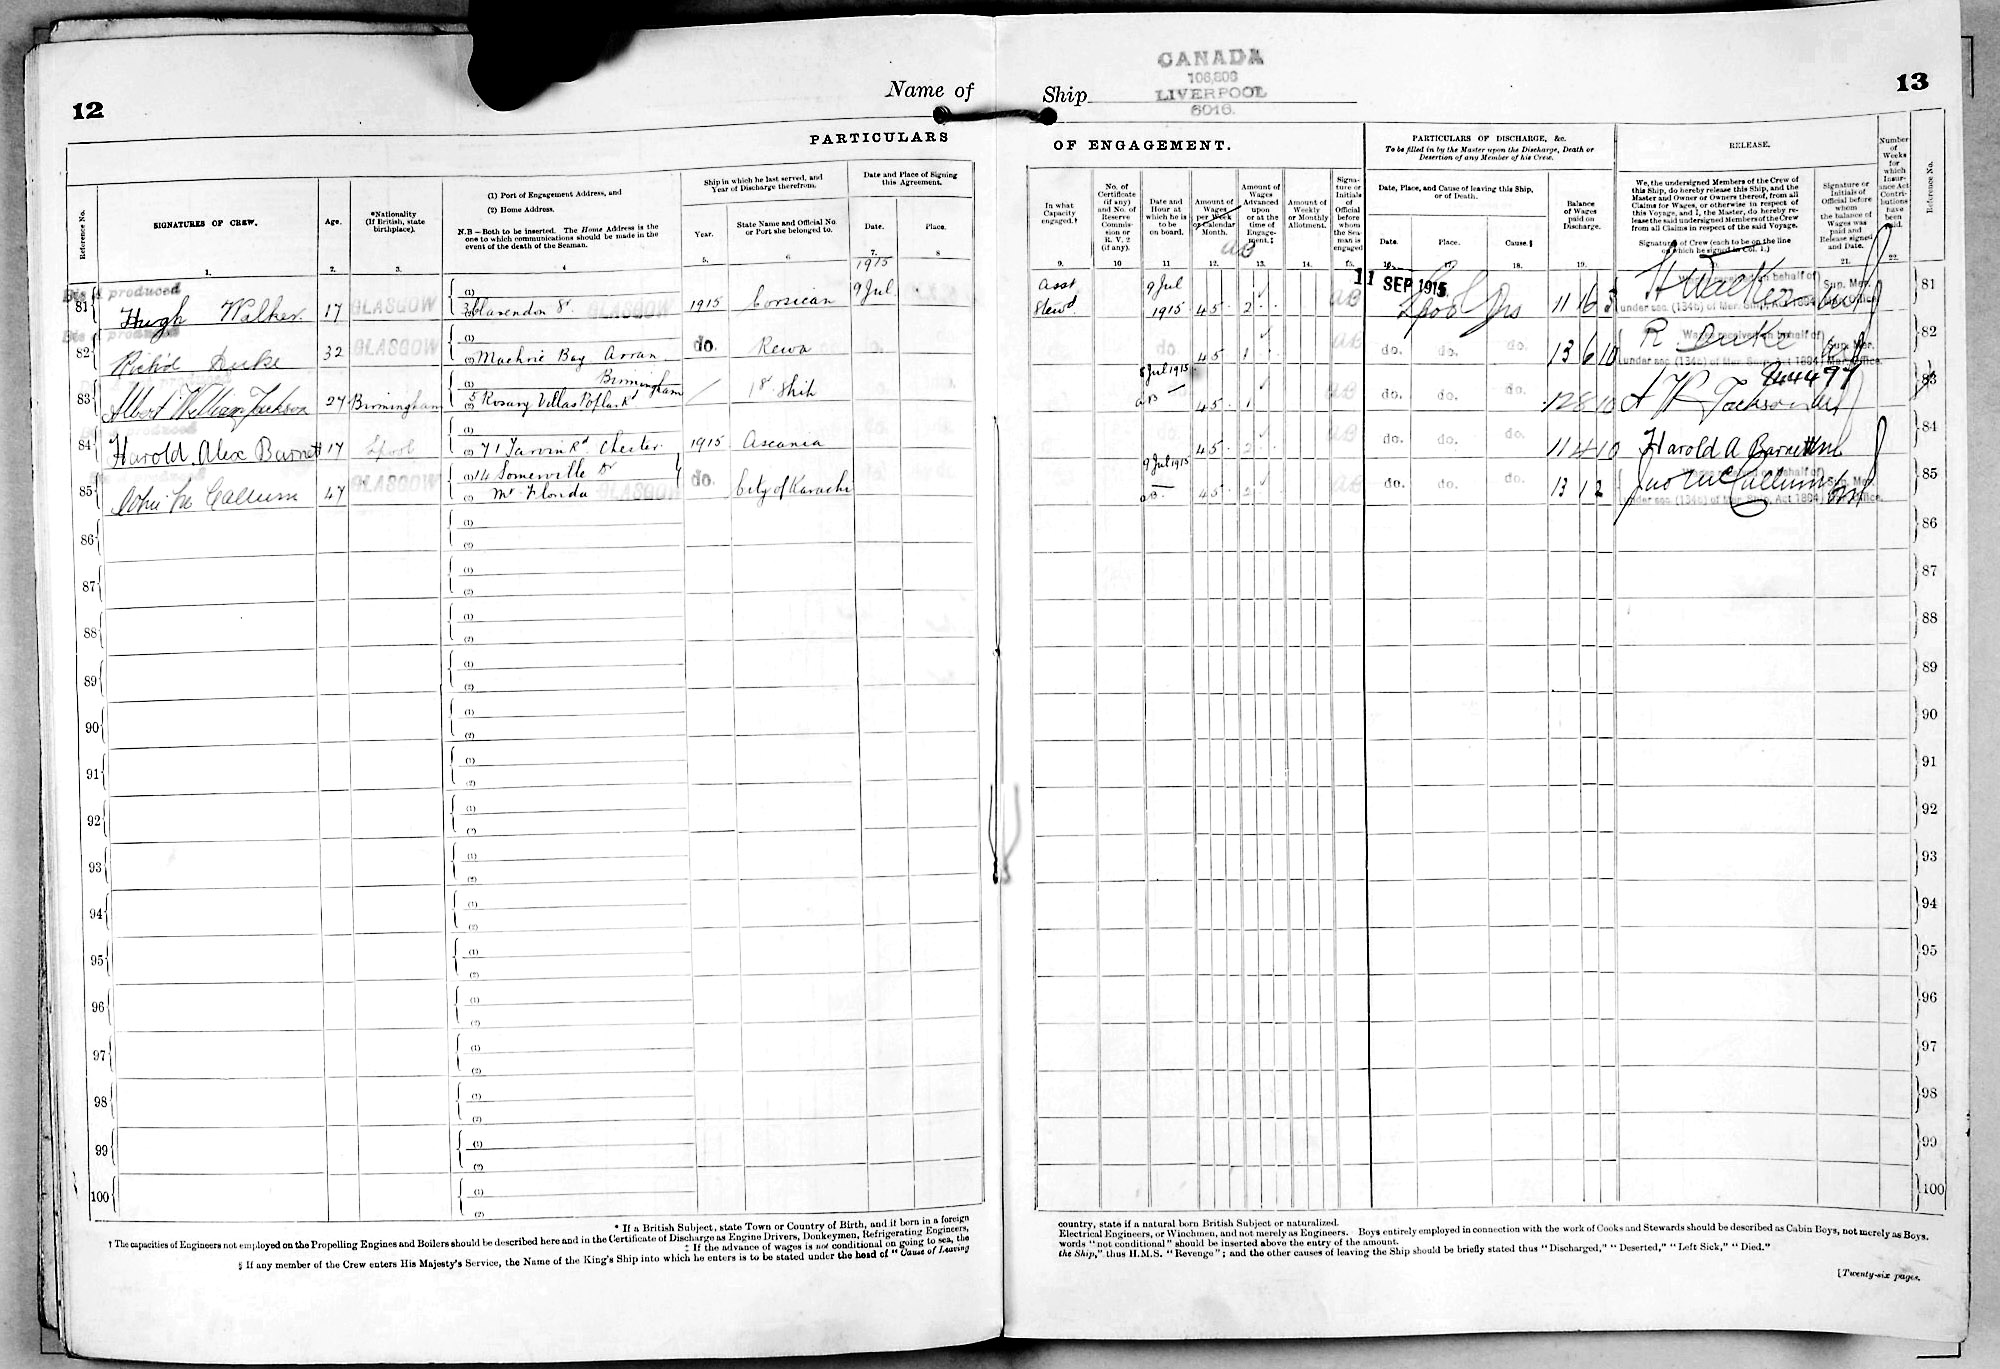 12
Name of
PARTICULARS
Reference No.
SIGNATURES OF CREW.
Age.
*Nationality
(If British, state
birthplace).
(1) Port of Engagement Address, and
(2) Home Address.
N.B — Both to be inserted. The Home Address is the
one to which communications should be made in the
event of the death of the Seaman.
Ship in which he last served, and
Year of Discharge therefrom.
Year.
State Name and Official No.
or Port she belonged to.
Date and Place of Signing
this Agreement.
Date.
Place.
1. 2. 3. 4 5. 6 7. 8
1915
81 Hugh Walker 17 GLASGOW (1) Clarendon St GLASGOW 1915 Corsican 9 Jul
82 Rich'd Duke 32 GLASGOW (1) (2) Machrie Bay Arran do. Rewa
83 Albert William Jackson 27 Birmingham (1) 5 Rosary Villas Poplar Rd Birmingham 1st Ship
84 Harold Alex Barnett 17 Lpool (1) (2) 71 Tarvin Rd Chester 1915 Ascania
85 John Mc Callum 47 GLASGOW (1) 14 Somerville Dr
(2) Mt Florida GLASGOW do. City of Karachi
86 (1)
(2)
87 (1)
(2)
88 (1)
(2)
89 (1)
(2)
90 (1)
(2)
91 (1)
(2)
92 (1)
(2)
93 (1)
(2)
94 (1)
(2)
95 (1)
(2)
96 (1)
(2)
97 (1)
(2)
98 (1)
(2)
99 (1)
(2)
100 (1)
(2)
* If a British Subject, state Town or Country of Birth, and if born in a foreign
† The capacities of Engineers not employed on the Propelling Engines and Boilers should be described here and in the Certificate of Discharge as Engine Drivers, Donkeymen, Refrigerating Engineers,
‡ If the advance of wages is not conditional on going to sea, the
§ If any member of the Crew enters His Majesty's Service, the Name of the King's Ship into which he enters is to be stated under the head of "Cause of Leaving
Ship
CANADA
106,809
LIVERPOOL
6016.
13
OF ENGAGEMENT.
PARTICULARS OF DISCHARGE, &c.
To be filled in by the Master upon the Discharge, Death or
Desertion of any Member of his Crew.
RELEASE.
Number
of
Weeks
for
which
Insur-
ance Act
Contri-
butions
have
been
paid.
Reference No.
In what
Capacity
engaged.†
No. of
Certificate
(if any)
and No. of
Reserve
Commis-
sion or
R. V. 2
(if any).
Date and
Hour at
which he is
to be
on board.
Amount of
Wages
per Week
or Calendar
Month.
Amount of
Wages
Advanced
upon
or at the
time of
Engage-
ment.‡
Amount of
Weekly
or Monthly
Allotment.
Signa-
ture or
Initials
of
Official
before
whom
the Sea-
man is
engaged
Date, Place, and Cause of leaving this Ship,
or of Death.
Date.
Place.
Cause.§
Balance
of Wages
paid on
Discharge.
We, the undersigned Members of the Crew of
this Ship, do hereby release this Ship, and the
Master and Owner or Owners thereof, from all
Claims for Wages, or otherwise in respect of
this Voyage, and I, the Master, do hereby re-
lease the said undersigned Members of the Crew
from all Claims in respect of the said Voyage.
Signatures of Crew (each to be on the line
on which he signed in Col. 1.)
Signature or
Initials of
Official before
whom
the balance of
Wages was
paid and
Release signed
and Date.
9. 10 11 12. 13. 14. 15. 16. 17. 18. 19. 21. 22.
Asst Stewd 9 Jul 1915 45 2 11 SEP 1915 Lpool Dis 11 16 3 H Walker 81
45 1 do. do. do. 13 6 10 R. Duke 82
8 Jul 1915 45 1 do. do. do. 12 8 10 A W Jackson 83
45 2 do. do. do. 11 4 10 Harold A Barnett 84
9 Jul 1915 45 2 do. do. do. 13 1 2 Jno McCallum 85
86
87
88
89
90
91
92
93
94
95
96
97
98
99
100
country, state if a natural born British Subject or naturalized.
Electrical Engineers, or Winchmen, and not merely as Engineers. Boys entirely employed in connection with the work of Cooks and Stewards should be described as Cabin Boys, not merely as Boys.
words "not conditional" should be inserted above the entry of the amount.
the Ship," thus H.M.S. "Revenge"; and the other causes of leaving the Ship should be briefly stated thus "Discharged," "Deserted," "Left Sick," "Died."
[Twenty-six pages.